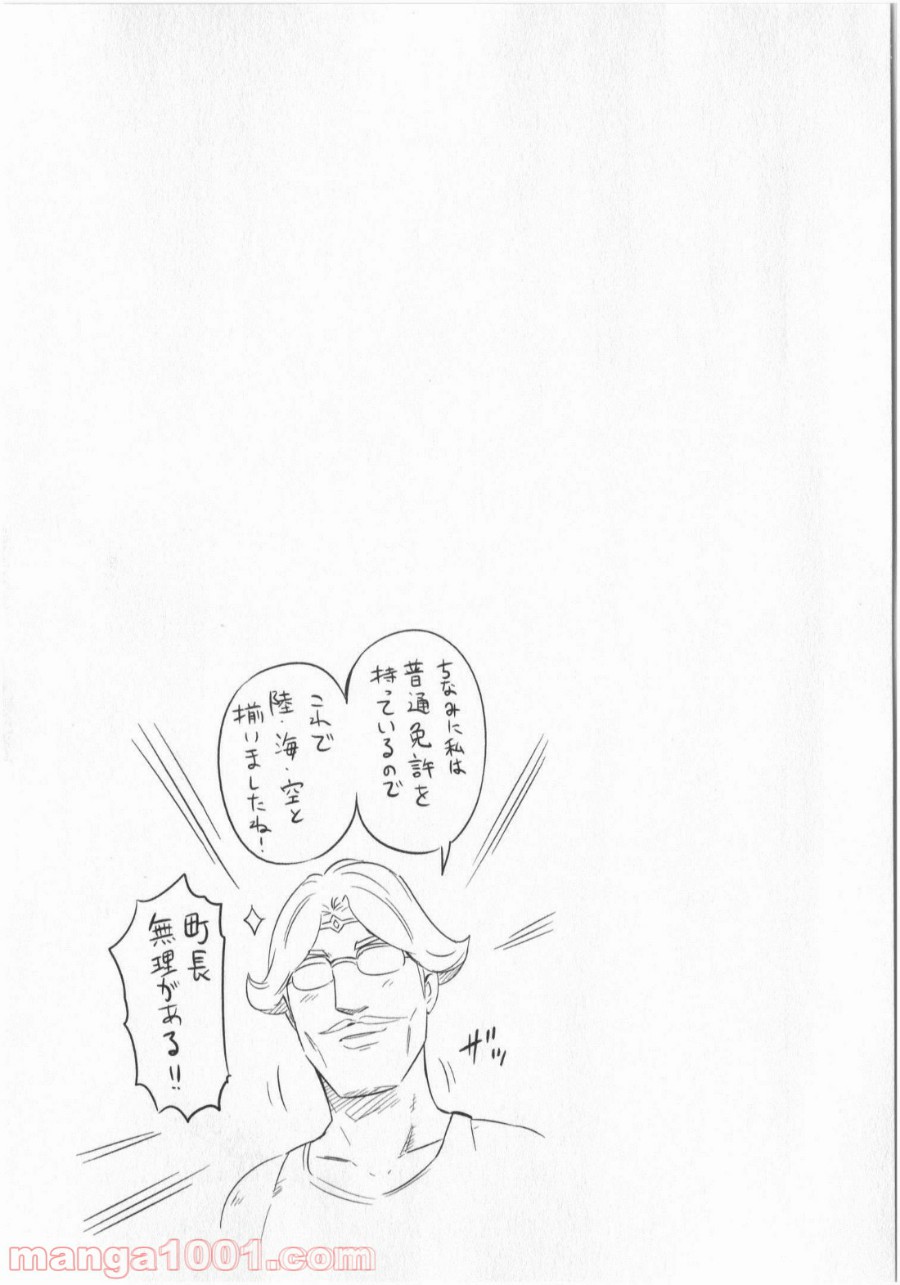 ちなみに私は
普通免許を
持っているので
これで
陸・海・空と
揃いましたね!
町長
無理がある!!
ザッ
manga1001.com